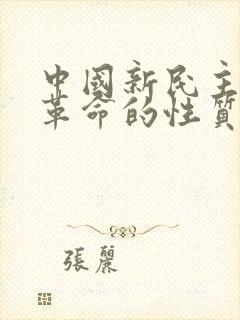 中國新民主
革命的性質
張麗